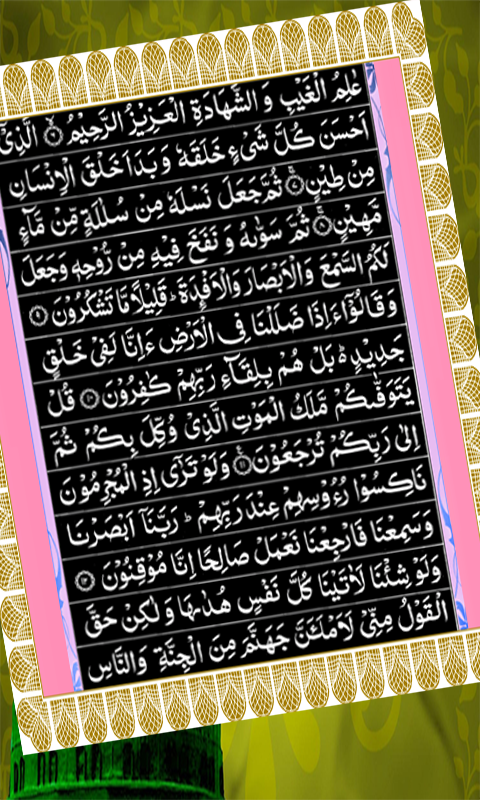 عٰلِمُ الْغَيْبِ وَ الشَّهَادَةِ الْعَزِيْزُ الرَّحِيْمُ ۙ۶ الَّذِیْۤ
اَحْسَنَ كُلَّ شَیْءٍ خَلَقَهٗ وَ بَدَاَ خَلْقَ الْاِنْسَانِ
مِنْ طِيْنٍ ۚ۷ ثُمَّ جَعَلَ نَسْلَهٗ مِنْ سُلٰلَةٍ مِّنْ مَّآءٍ
مَّهِيْنٍ ۚ۸ ثُمَّ سَوّٰىهُ وَ نَفَخَ فِيْهِ مِنْ رُّوْحِهٖ وَ جَعَلَ
لَكُمُ السَّمْعَ وَ الْاَبْصَارَ وَ الْاَفْـِٕدَةَ ؕ قَلِيْلًا مَّا تَشْكُرُوْنَ ۹
وَ قَالُوْۤا ءَاِذَا ضَلَلْنَا فِی الْاَرْضِ ءَاِنَّا لَفِیْ خَلْقٍ
جَدِيْدٍ ؕ۬ بَلْ هُمْ بِلِقَآئِ رَبِّهِمْ كٰفِرُوْنَ ۱۰ قُلْ
يَتَوَفّٰىكُمْ مَّلَكُ الْمَوْتِ الَّذِیْ وُكِّلَ بِكُمْ ثُمَّ
اِلٰى رَبِّكُمْ تُرْجَعُوْنَ ۠۱۱ وَ لَوْ تَرٰۤى اِذِ الْمُجْرِمُوْنَ
نَاكِسُوْا رُءُوْسِهِمْ عِنْدَ رَبِّهِمْ ؕ رَبَّنَاۤ اَبْصَرْنَا
وَ سَمِعْنَا فَارْجِعْنَا نَعْمَلْ صَالِحًا اِنَّا مُوْقِنُوْنَ ۱۲
وَ لَوْ شِئْنَا لَاٰتَيْنَا كُلَّ نَفْسٍ هُدٰىهَا وَ لٰكِنْ حَقَّ
الْقَوْلُ مِنِّیْ لَاَمْلَـَٔنَّ جَهَنَّمَ مِنَ الْجِنَّةِ وَ النَّاسِ